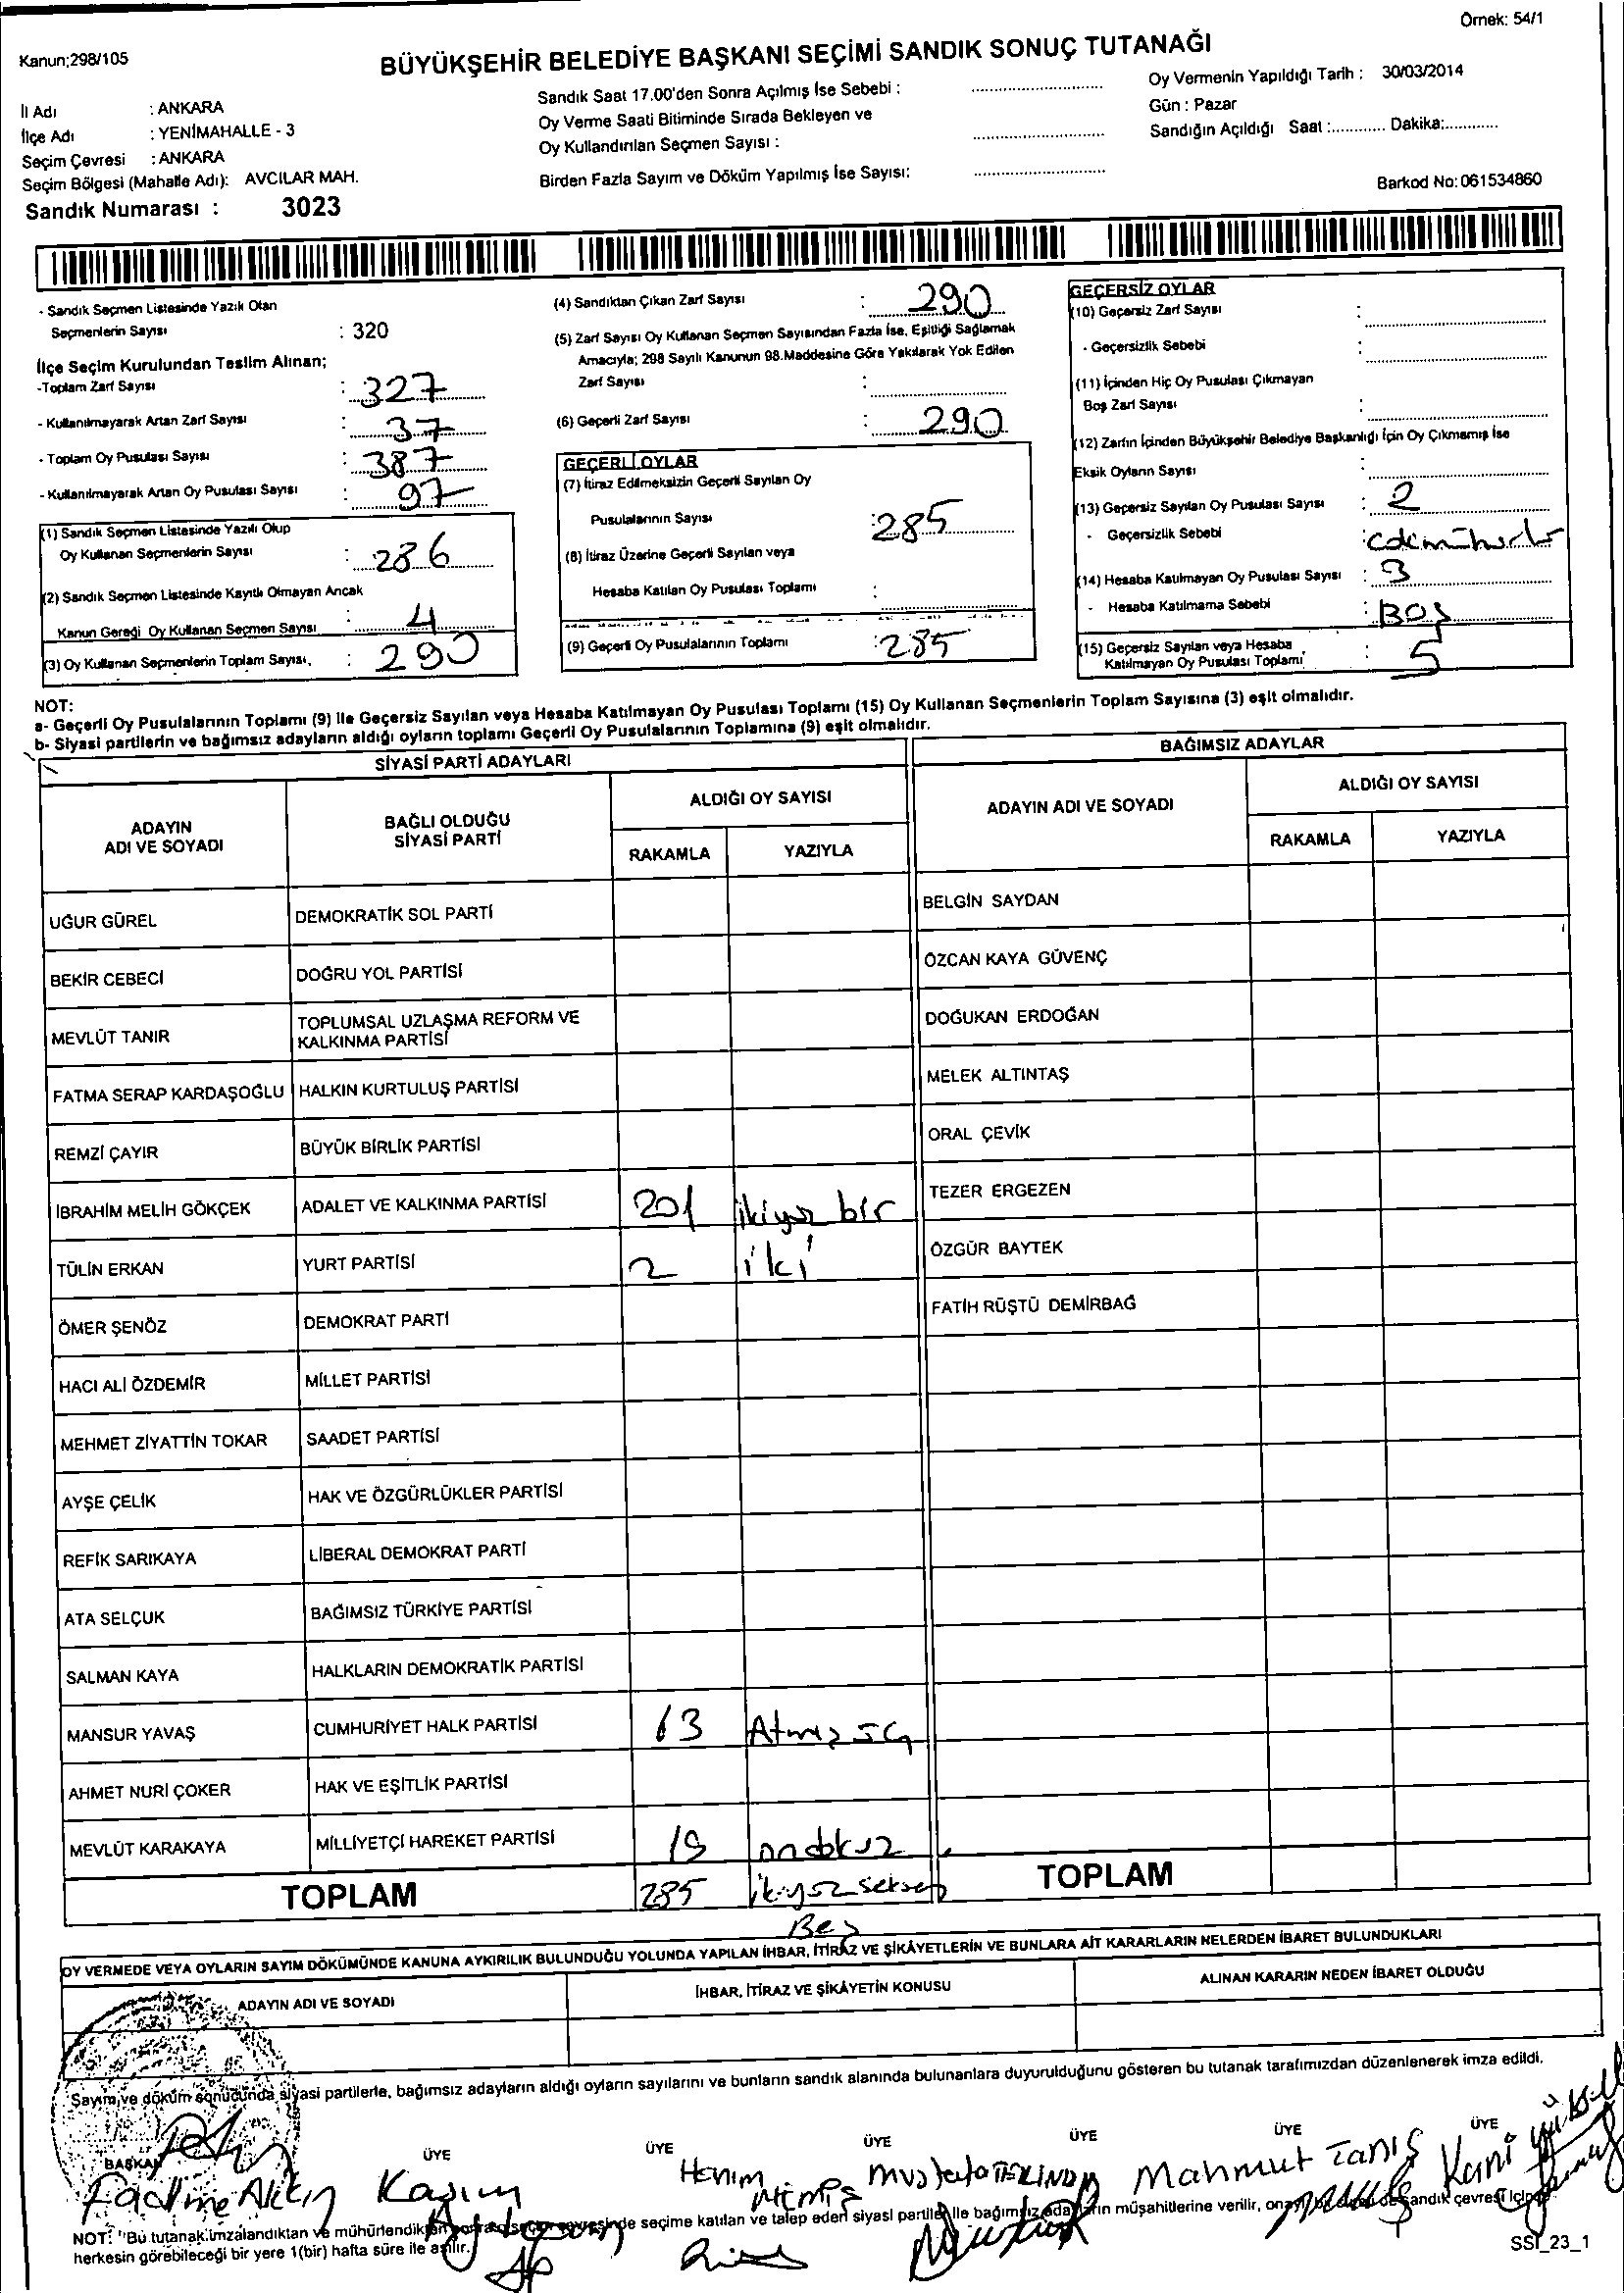 Örnek: 54/1
Kanun;298/105
BÜYÜKŞEHİR BELEDİYE BAŞKANI SEÇİMİ SANDIK SONUÇ TUTANAĞI
İl Adı : ANKARA
İlçe Adı : YENİMAHALLE - 3
Seçim Çevresi : ANKARA
Seçim Bölgesi (Mahalle Adı): AVCILAR MAH.
Sandık Numarası : 3023
Sandık Saat 17.00'den Sonra Açılmış İse Sebebi :
Oy Verme Saati Bitiminde Sırada Bekleyen ve
Oy Kullandırılan Seçmen Sayısı :
Birden Fazla Sayım ve Döküm Yapılmış İse Sayısı:
Oy Vermenin Yapıldığı Tarih : 30/03/2014
Gün : Pazar
Sandığın Açıldığı Saat :............ Dakika:............
Barkod No: 061534860
- Sandık Seçmen Listesinde Yazılı Olan
Seçmenlerin Sayısı : 320
İlçe Seçim Kurulundan Teslim Alınan;
-Toplam Zarf Sayısı : 327
- Kullanılmayarak Artan Zarf Sayısı : 37
- Toplam Oy Pusulası Sayısı : 387
- Kullanılmayarak Artan Oy Pusulası Sayısı : 97
(1) Sandık Seçmen Listesinde Yazılı Olup
Oy Kullanan Seçmenlerin Sayısı : 286
(2) Sandık Seçmen Listesinde Kayıtlı Olmayan Ancak
Kanun Gereği Oy Kullanan Seçmen Sayısı : 4
(3) Oy Kullanan Seçmenlerin Toplam Sayısı, : 290
(4) Sandıktan Çıkan Zarf Sayısı : 290
(5) Zarf Sayısı Oy Kullanan Seçmen Sayısından Fazla İse, Eşitliği Sağlamak
Amacıyla; 298 Sayılı Kanunun 98.Maddesine Göre Yakılarak Yok Edilen
Zarf Sayısı :
(6) Geçerli Zarf Sayısı : 290
GEÇERLİ OYLAR
(7) İtiraz Edilmeksizin Geçerli Sayılan Oy
Pusulalarının Sayısı : 285
(8) İtiraz Üzerine Geçerli Sayılan veya
Hesaba Katılan Oy Pusulası Toplamı :
(9) Geçerli Oy Pusulalarının Toplamı : 285
GEÇERSİZ OYLAR
(10) Geçersiz Zarf Sayısı :
- Geçersizlik Sebebi
(11) İçinden Hiç Oy Pusulası Çıkmayan
Boş Zarf Sayısı :
(12) Zarfın İçinden Büyükşehir Belediye Başkanlığı İçin Oy Çıkmamış İse
Eksik Oyların Sayısı :
(13) Geçersiz Sayılan Oy Pusulası Sayısı : 2
- Geçersizlik Sebebi :
(14) Hesaba Katılmayan Oy Pusulası Sayısı : 3
- Hesaba Katılmama Sebebi : BOŞ
(15) Geçersiz Sayılan veya Hesaba
Katılmayan Oy Pusulası Toplamı : 5
NOT:
a- Geçerli Oy Pusulalarının Toplamı (9) ile Geçersiz Sayılan veya Hesaba Katılmayan Oy Pusulası Toplamı (15) Oy Kullanan Seçmenlerin Toplam Sayısına (3) eşit olmalıdır.
b- Siyasi partilerin ve bağımsız adayların aldığı oyların toplamı Geçerli Oy Pusulalarının Toplamına (9) eşit olmalıdır.
SİYASİ PARTİ ADAYLARI
BAĞIMSIZ ADAYLAR
ADAYIN ADI VE SOYADI
BAĞLI OLDUĞU SİYASİ PARTİ
ALDIĞI OY SAYISI
RAKAMLA YAZIYLA
ADAYIN ADI VE SOYADI
ALDIĞI OY SAYISI
RAKAMLA YAZIYLA
UĞUR GÜREL DEMOKRATİK SOL PARTİ
BELGİN SAYDAN
BEKİR CEBECİ DOĞRU YOL PARTİSİ
ÖZCAN KAYA GÜVENÇ
MEVLÜT TANIR TOPLUMSAL UZLAŞMA REFORM VE KALKINMA PARTİSİ
DOĞUKAN ERDOĞAN
FATMA SERAP KARDAŞOĞLU HALKIN KURTULUŞ PARTİSİ
MELEK ALTINTAŞ
REMZİ ÇAYIR BÜYÜK BİRLİK PARTİSİ
ORAL ÇEVİK
İBRAHİM MELİH GÖKÇEK ADALET VE KALKINMA PARTİSİ 201 ikiyüz bir
TEZER ERGEZEN
TÜLİN ERKAN YURT PARTİSİ 2 iki
ÖZGÜR BAYTEK
ÖMER ŞENÖZ DEMOKRAT PARTİ
FATİH RÜŞTÜ DEMİRBAĞ
HACI ALİ ÖZDEMİR MİLLET PARTİSİ
MEHMET ZİYATTİN TOKAR SAADET PARTİSİ
AYŞE ÇELİK HAK VE ÖZGÜRLÜKLER PARTİSİ
REFİK SARIKAYA LİBERAL DEMOKRAT PARTİ
ATA SELÇUK BAĞIMSIZ TÜRKİYE PARTİSİ
SALMAN KAYA HALKLARIN DEMOKRATİK PARTİSİ
MANSUR YAVAŞ CUMHURİYET HALK PARTİSİ 63 Atmış üç
AHMET NURİ ÇOKER HAK VE EŞİTLİK PARTİSİ
MEVLÜT KARAKAYA MİLLİYETÇİ HAREKET PARTİSİ 19 ondokuz
TOPLAM 285 ikiyüz seksen Beş
TOPLAM
OY VERMEDE VEYA OYLARIN SAYIM DÖKÜMÜNDE KANUNA AYKIRILIK BULUNDUĞU YOLUNDA YAPILAN İHBAR, İTİRAZ VE ŞİKÂYETLERİN VE BUNLARA AİT KARARLARIN NELERDEN İBARET BULUNDUKLARI
ADAYIN ADI VE SOYADI
İHBAR, İTİRAZ VE ŞİKÂYETİN KONUSU
ALINAN KARARIN NEDEN İBARET OLDUĞU
Sayım ve döküm sonucunda siyasi partilerle, bağımsız adayların aldığı oyların sayılarını ve bunların sandık alanında bulunanlara duyurulduğunu gösteren bu tutanak tarafımızdan düzenlenerek imza edildi.
BAŞKAN ÜYE ÜYE ÜYE ÜYE ÜYE ÜYE
Kasım Hanım Mustafa Mahmut Tanış Kani
NOT: "Bu tutanak imzalandıktan ve mühürlendikten seçime katılan ve talep eden siyasi partiler ile bağımsız adayların müşahitlerine verilir, sandık çevresi içinde
herkesin görebileceği bir yere 1(bir) hafta süre ile asılır.
SSI_23_1